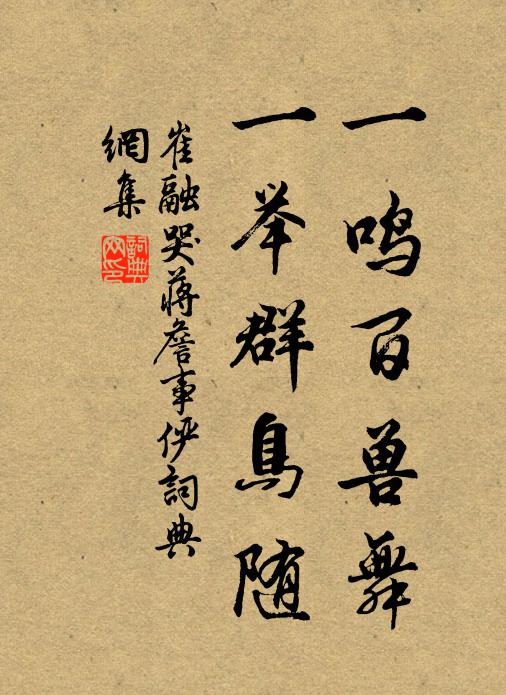 一鸣百兽舞
一举群鸟随
崔融哭蒋詹事俨詞典
網集
詞典网印